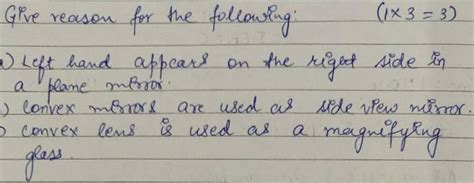 Give reason for the following: (1x3=3)
a) Left hand appears on the right side in
a plane mirror.
) Convex mirrors are used as side view mirror.
) convex lens is used as a magnifying
glass.